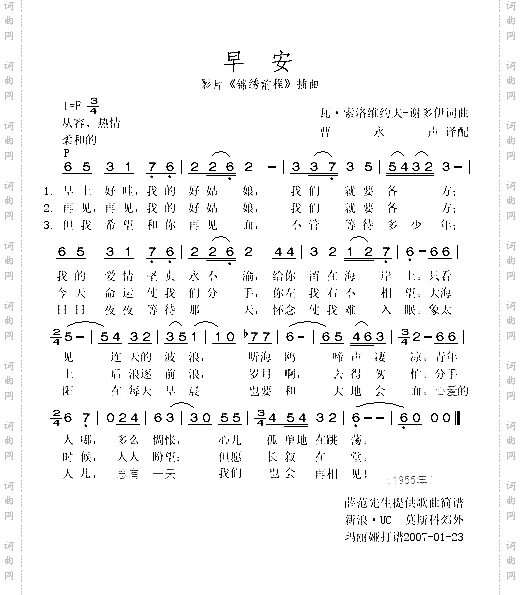 早 安
影片《锦绣前程》插曲
1=F 3/4
从容、热情
柔和的
P
瓦·索洛维约夫-谢多伊词曲
曹 永 声 译配
6 5 3 1 7 6 2 2 6 2 - 3 3 7 3 5 5 4 3 2 6 -
1. 早上 好哇, 我的 好姑 娘, 我们 就要 各 方;
2. 再见, 再见, 我的 好姑 娘, 我们 就要 各 方;
3. 但我 希望 和你 再见 面, 不管 等待 多少 年;
6 5 3 1 7 6 2 2 6 2 4 4 3 2 1 2 7 6 - 6 6
我的 爱情 永 不 渝, 给你 留在 海 岸上. 只看
今天 命运 使我们 分 手, 你在 我右 不 相 望. 大海
日日 夜夜 等待 那 天, 怀念 使我 难 入 眠. 象太
2/4 5 - 5 4 3 2 3 5 1 1 0 b7 7 6 - 3/4 6 4 5 3 2 - 6 6
见 连天的 波 浪, 听海 鸥 啼声 凄 凉. 青年
上 后浪逐 前浪, 岁月 啊,
阳 在每天 早晨 也要 和 大地 会 面. 心爱的
2/4 6 7 0 2 4 6 3 3 0 5 5 3/4 4 5 4 3 2 6 - - 6 0 0
人 哪, 多么 惆怅, 心儿 孤单地 在跳 荡;
时候, 人人 盼望; 但愿 长叙 在 一 堂.
人儿, 总有 一天 我们 也会 再相 见!
(1955年)
薛范先生提供歌曲简谱
新浪·UC 莫斯科郊外
玛丽娅打谱2007-01-23
词曲网